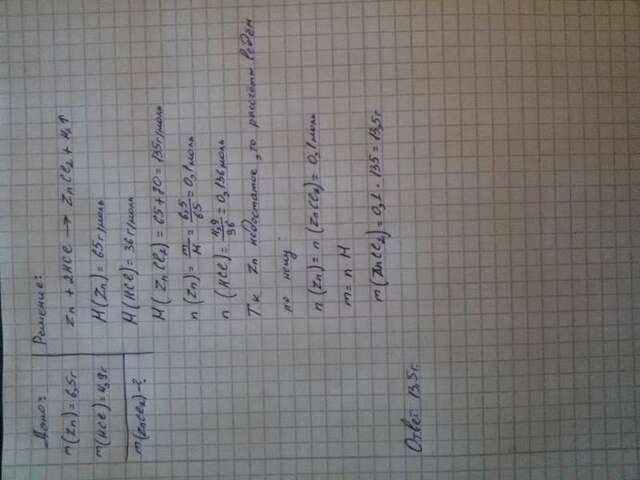 Дано:
m(Zn)=6,5г
m(HCl)=4,9г
m(ZnCl2)-?
Решение:
Zn + 2HCl → ZnCl2 + H2↑
M(Zn)=65г/моль
M(HCl)=36г/моль
M(ZnCl2)=65+70=135г/моль
n(Zn)=m/M=6,5/65=0,1моль
n(HCl)=4,9/36=0,136моль
Т.к Zn недостаток, то рассчеты ведем
по нему:
n(Zn)=n(ZnCl2)=0,1моль
m=n M
m(ZnCl2)=0,1·135=13,5г
Ответ 13,5г.